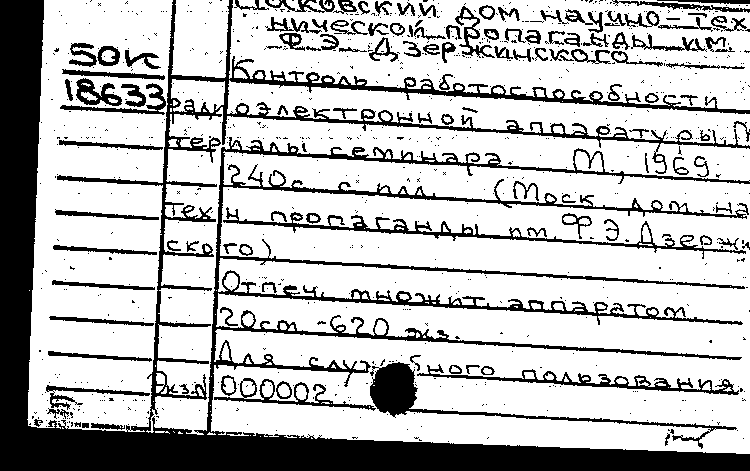 Московский дом научно-тех
нической пропаганды им.
Ф.Э. Дзержинского
50к
18633
Контроль работоспособности
радиоэлектронной аппаратуры.
териалы семинара. М., 1969.
240с. с илл. (Моск. дом. на
техн. пропаганды им. Ф.Э. Дзержи
ского).
Отпеч. множит. аппаратом.
20см - 620 экз.
Для служебного пользования.
Экз.N 000002